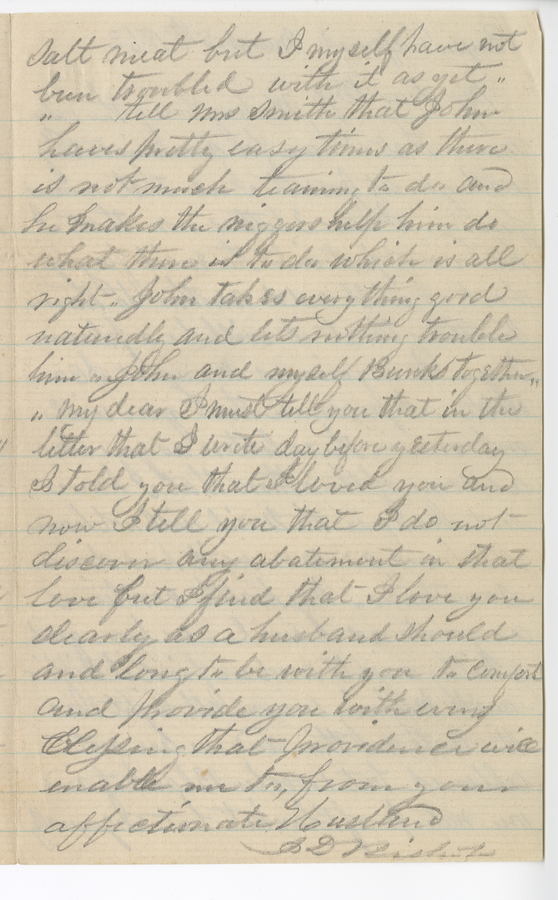 salt meat but I myself have not
been troubled with it as yet "
" tell Mrs Smith that John
haves pretty easy times as there
is not much teaming to do and
he makes the niggers help him do
what there is to do which is all
right. John takes everything good
naturedly and lets nothing trouble
him " John and myself Bunks together "
" my dear I must tell you that in the
letter that I wrote day before yesterday
I told you that I loved you and
now I tell you that I do not
discover any abatement in that
love but I find that I love you
dearly as a husband should
and long to be with you to comfort
and provide you with every
Blessing that providence will
enable me to, from your
affectionate Husband
S D